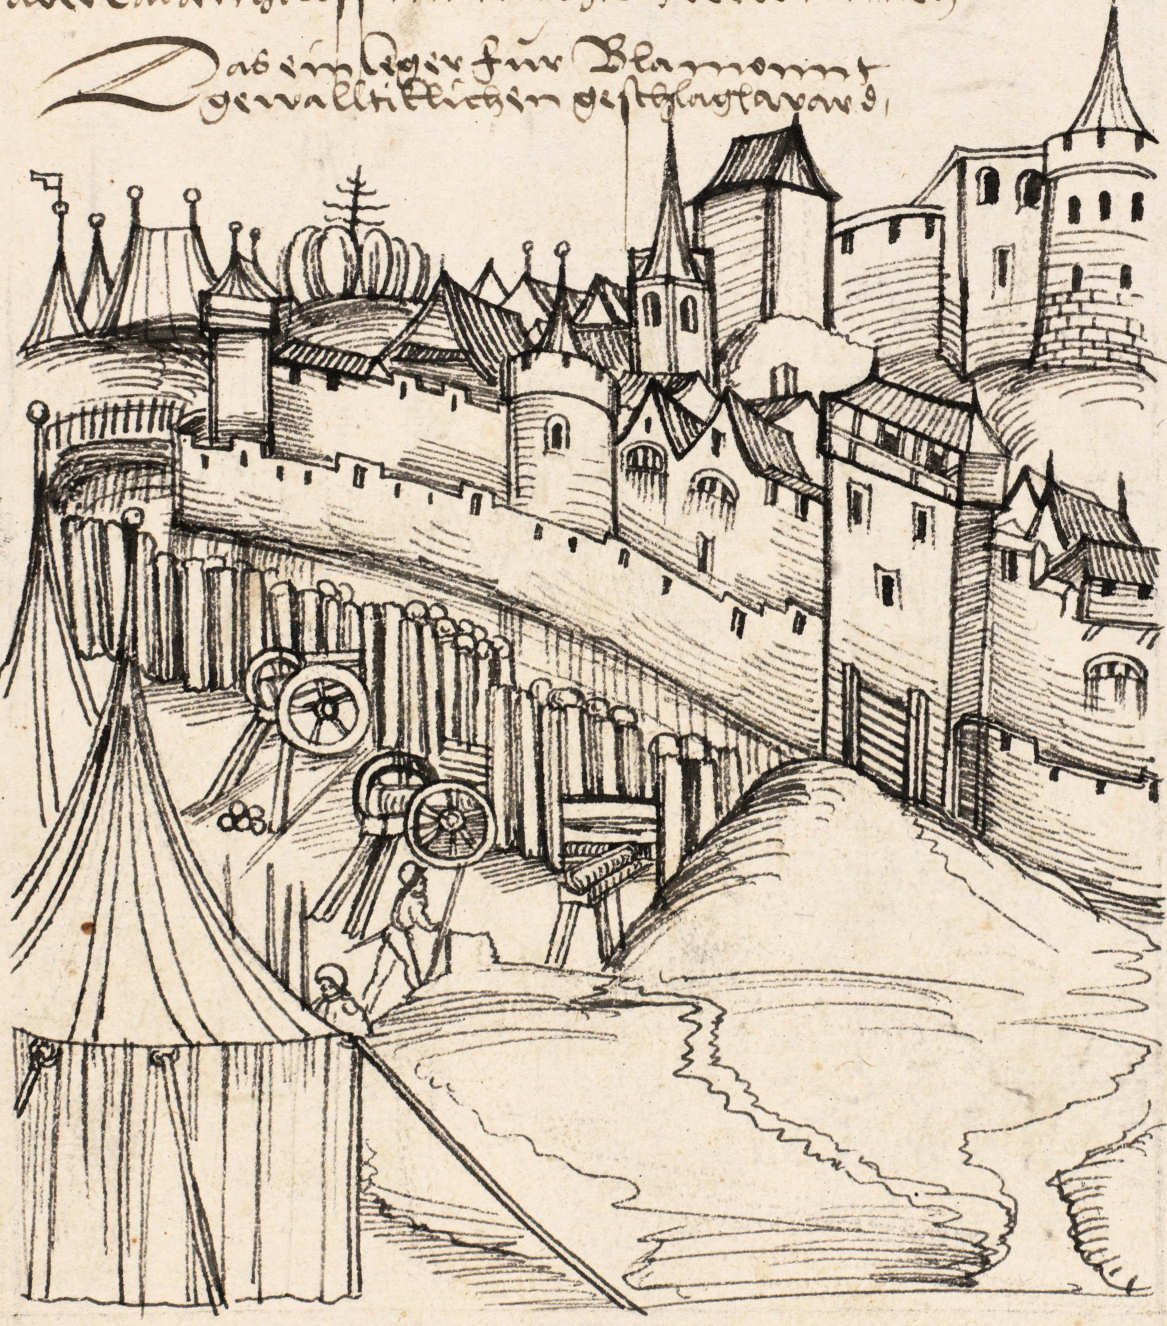 Das ein leger fur Blamonnt
gewalltiklichen geschlagen ward,